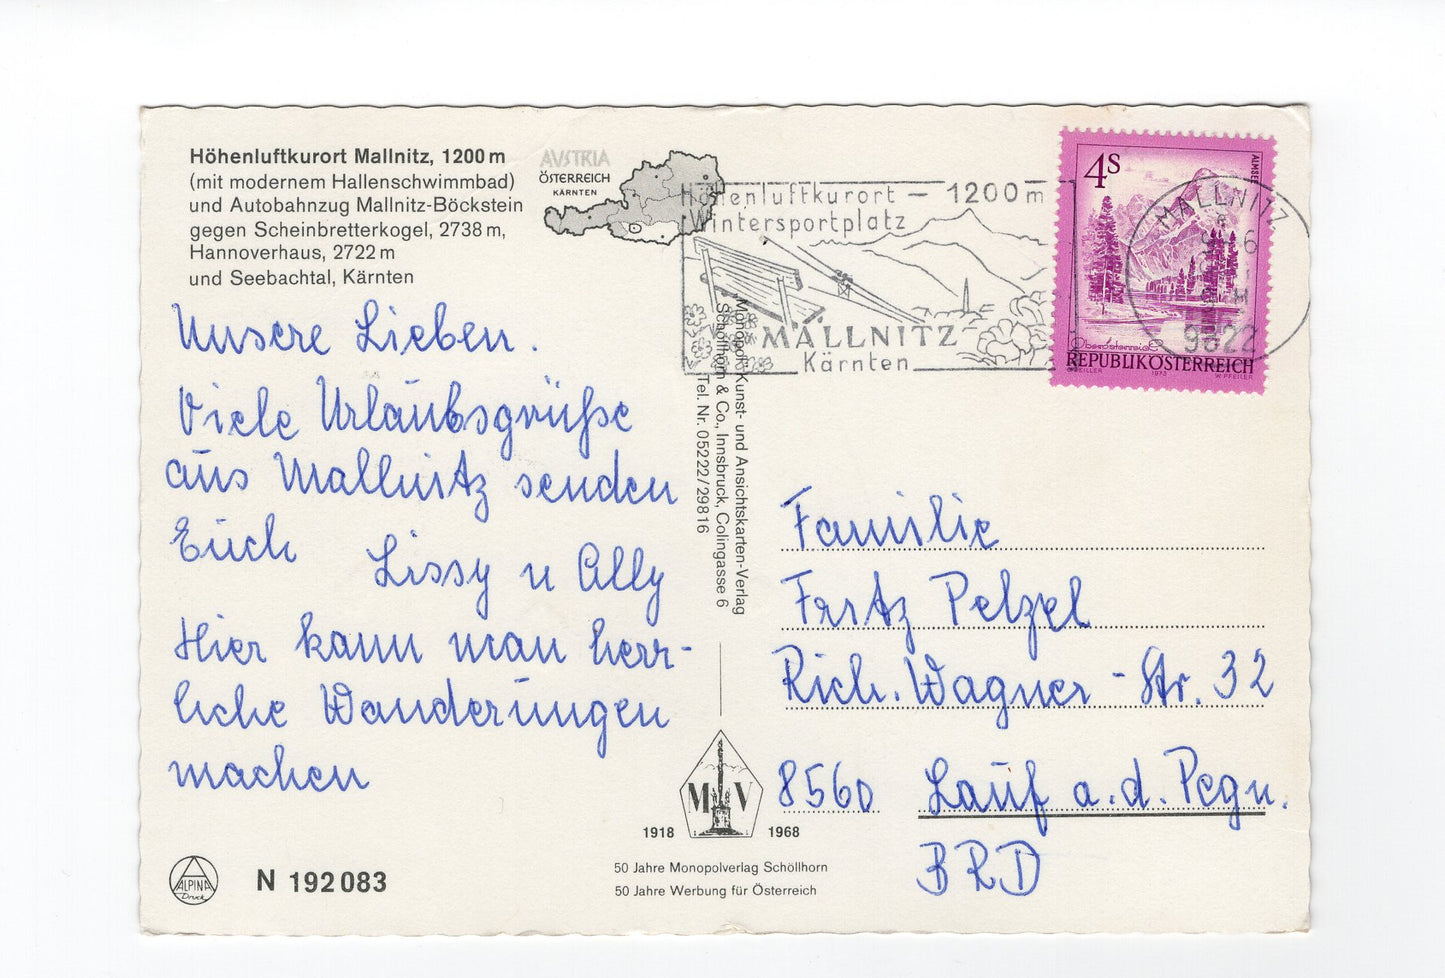 Höhenluftkurort Mallnitz, 1200 m
(mit modernem Hallenschwimmbad)
und Autobahnzug Mallnitz-Böckstein
gegen Scheinbretterkogel, 2738 m,
Hannoverhaus, 2722 m
und Seebachtal, Kärnten
AVSTRIA
ÖSTERREICH
KÄRNTEN
Höhenluftkurort – 1200 m
Wintersportplatz
MALLNITZ
Kärnten
4S
ALMSEE
Oberösterreich
REPUBLIK ÖSTERREICH
1973
W. PFEILER
MALLNITZ
9822
Unsere Lieben.
Viele Urlaubsgrüße
aus Mallnitz senden
Euch
Lissy u Ally
Hier kann man herr-
liche Wanderungen
machen
Monopol-Kunst- und Ansichtskarten-Verlag
Schöllhorn & Co., Innsbruck, Colingasse 6
Tel. Nr. 05222/29816
Familie
Fritz Pelzel
Rich. Wagner-Str. 32
8560 Lauf a. d. Pegn.
BRD
M V
1918 1968
50 Jahre Monopolverlag Schöllhorn
50 Jahre Werbung für Österreich
ALPINA
Druck
N 192 083